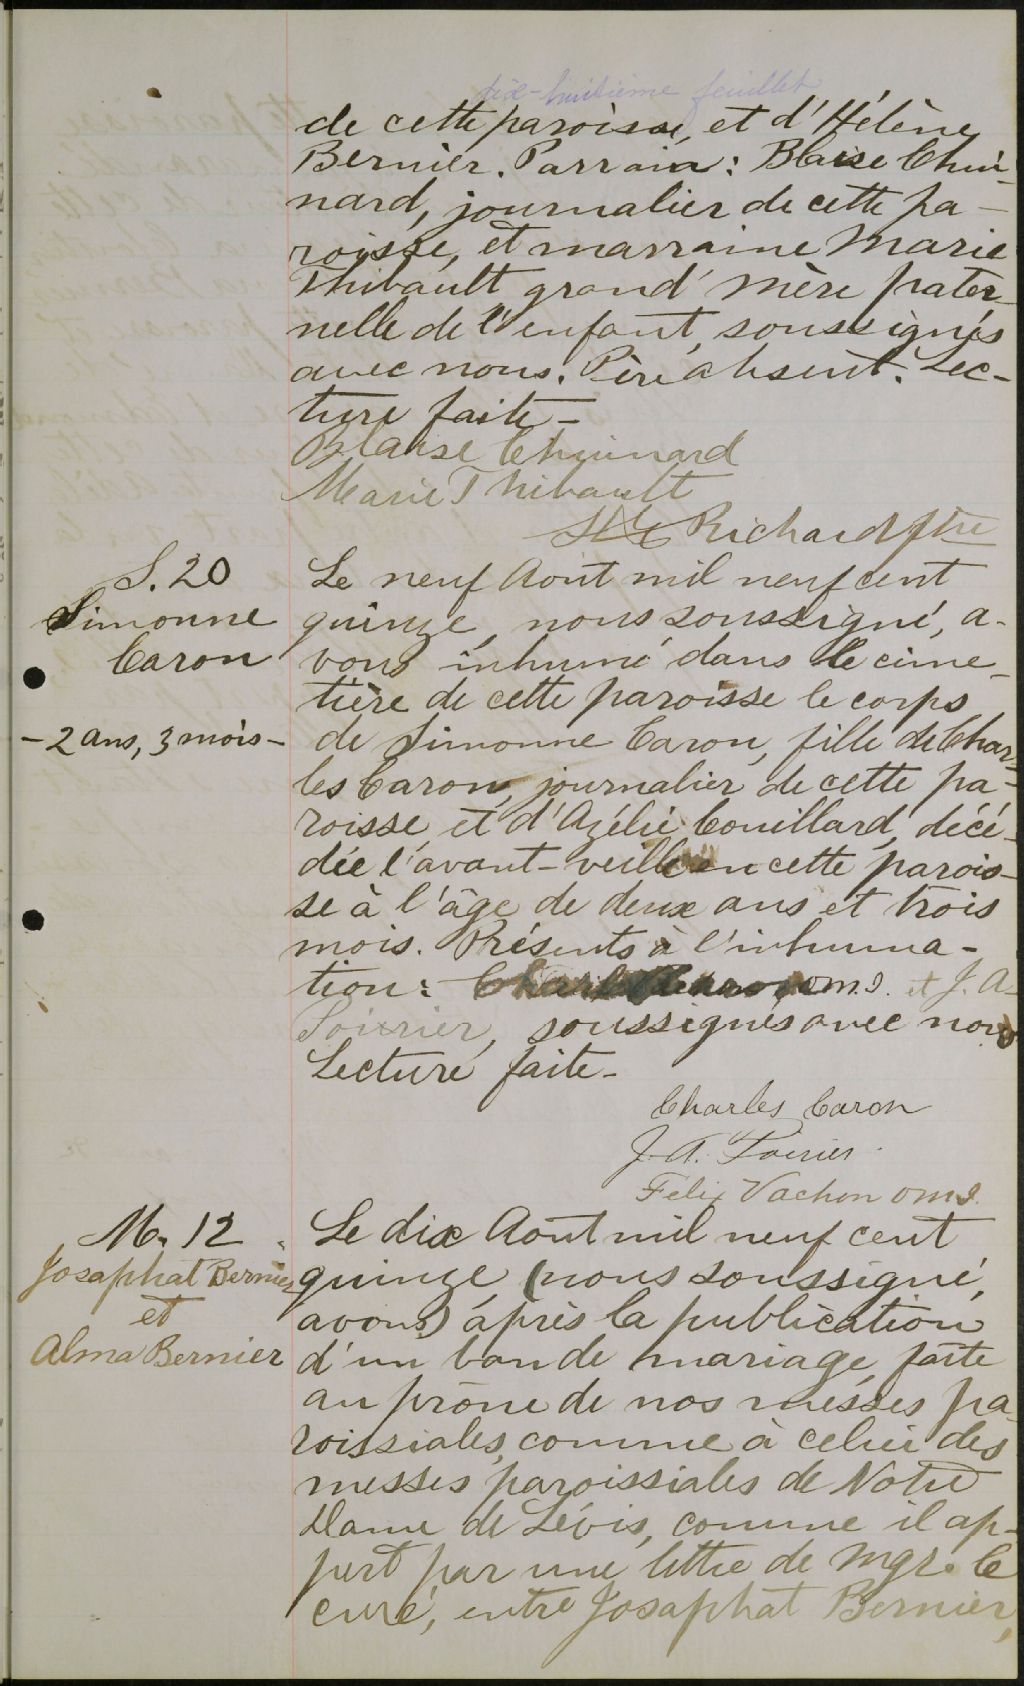 dix-huitième feuillet
de cette paroisse, et d'Hélène
Bernier. Parrain: Blaise Chui-
nard, journalier de cette pa-
roisse, et marraine Marie
Thibault grand' mère pater-
nelle de l'enfant, soussignés
avec nous. Père absent. Lec-
ture faite-
Blaise Chuinard
Marie Thibault
Richard Ptre
S. 20
Simonne
Caron
-2 ans, 3 mois-
Le neuf Août mil neuf cent
quinze, nous soussigné, a-
vons inhumé dans le cime-
tière de cette paroisse le corps
de Simonne Caron, fille de Char-
les Caron, journalier de cette pa-
roisse, et d'Azélie Couillard, décé-
dée l'avant-veille en cette parois-
se à l'âge de deux ans et trois
mois. Présents à l'inhuma-
tion: Charles Caron et J. A.
Poirier, soussignés avec nous
Lecture faite-
Charles Caron
J. A. Poirier
Felix Vachon o.m.i.
M. 12
Josaphat Bernier
et
Alma Bernier
Le dix Août mil neuf cent
quinze, (nous soussigné,
avons) après la publication
d'un ban de mariage faite
au prône de nos messes pa-
roissiales, comme à celui des
messes paroissiales de Notre
Dame de Lévis, comme il ap-
pert par une lettre de Mgr. le
curé, entre Josaphat Bernier,